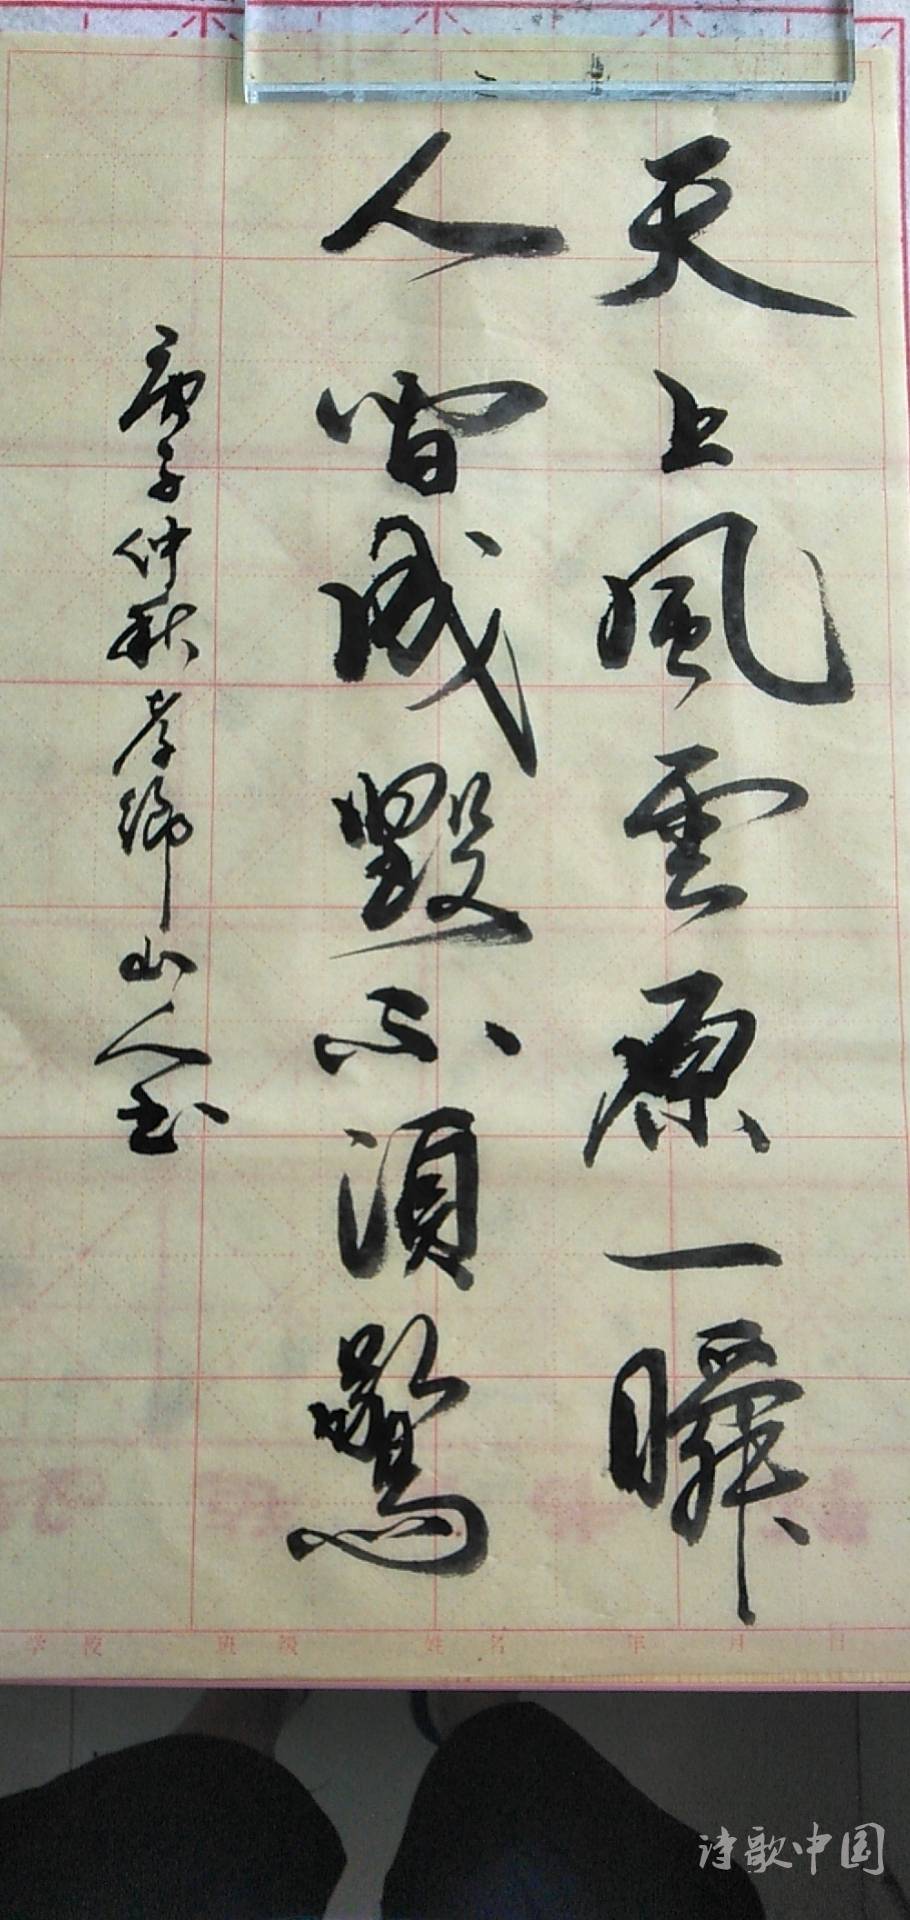 天上風雲原一瞬
人間成毀不須驚
庚子仲秋孝鄉山人书
学校 班级 姓名 年 月 日
诗歌中国